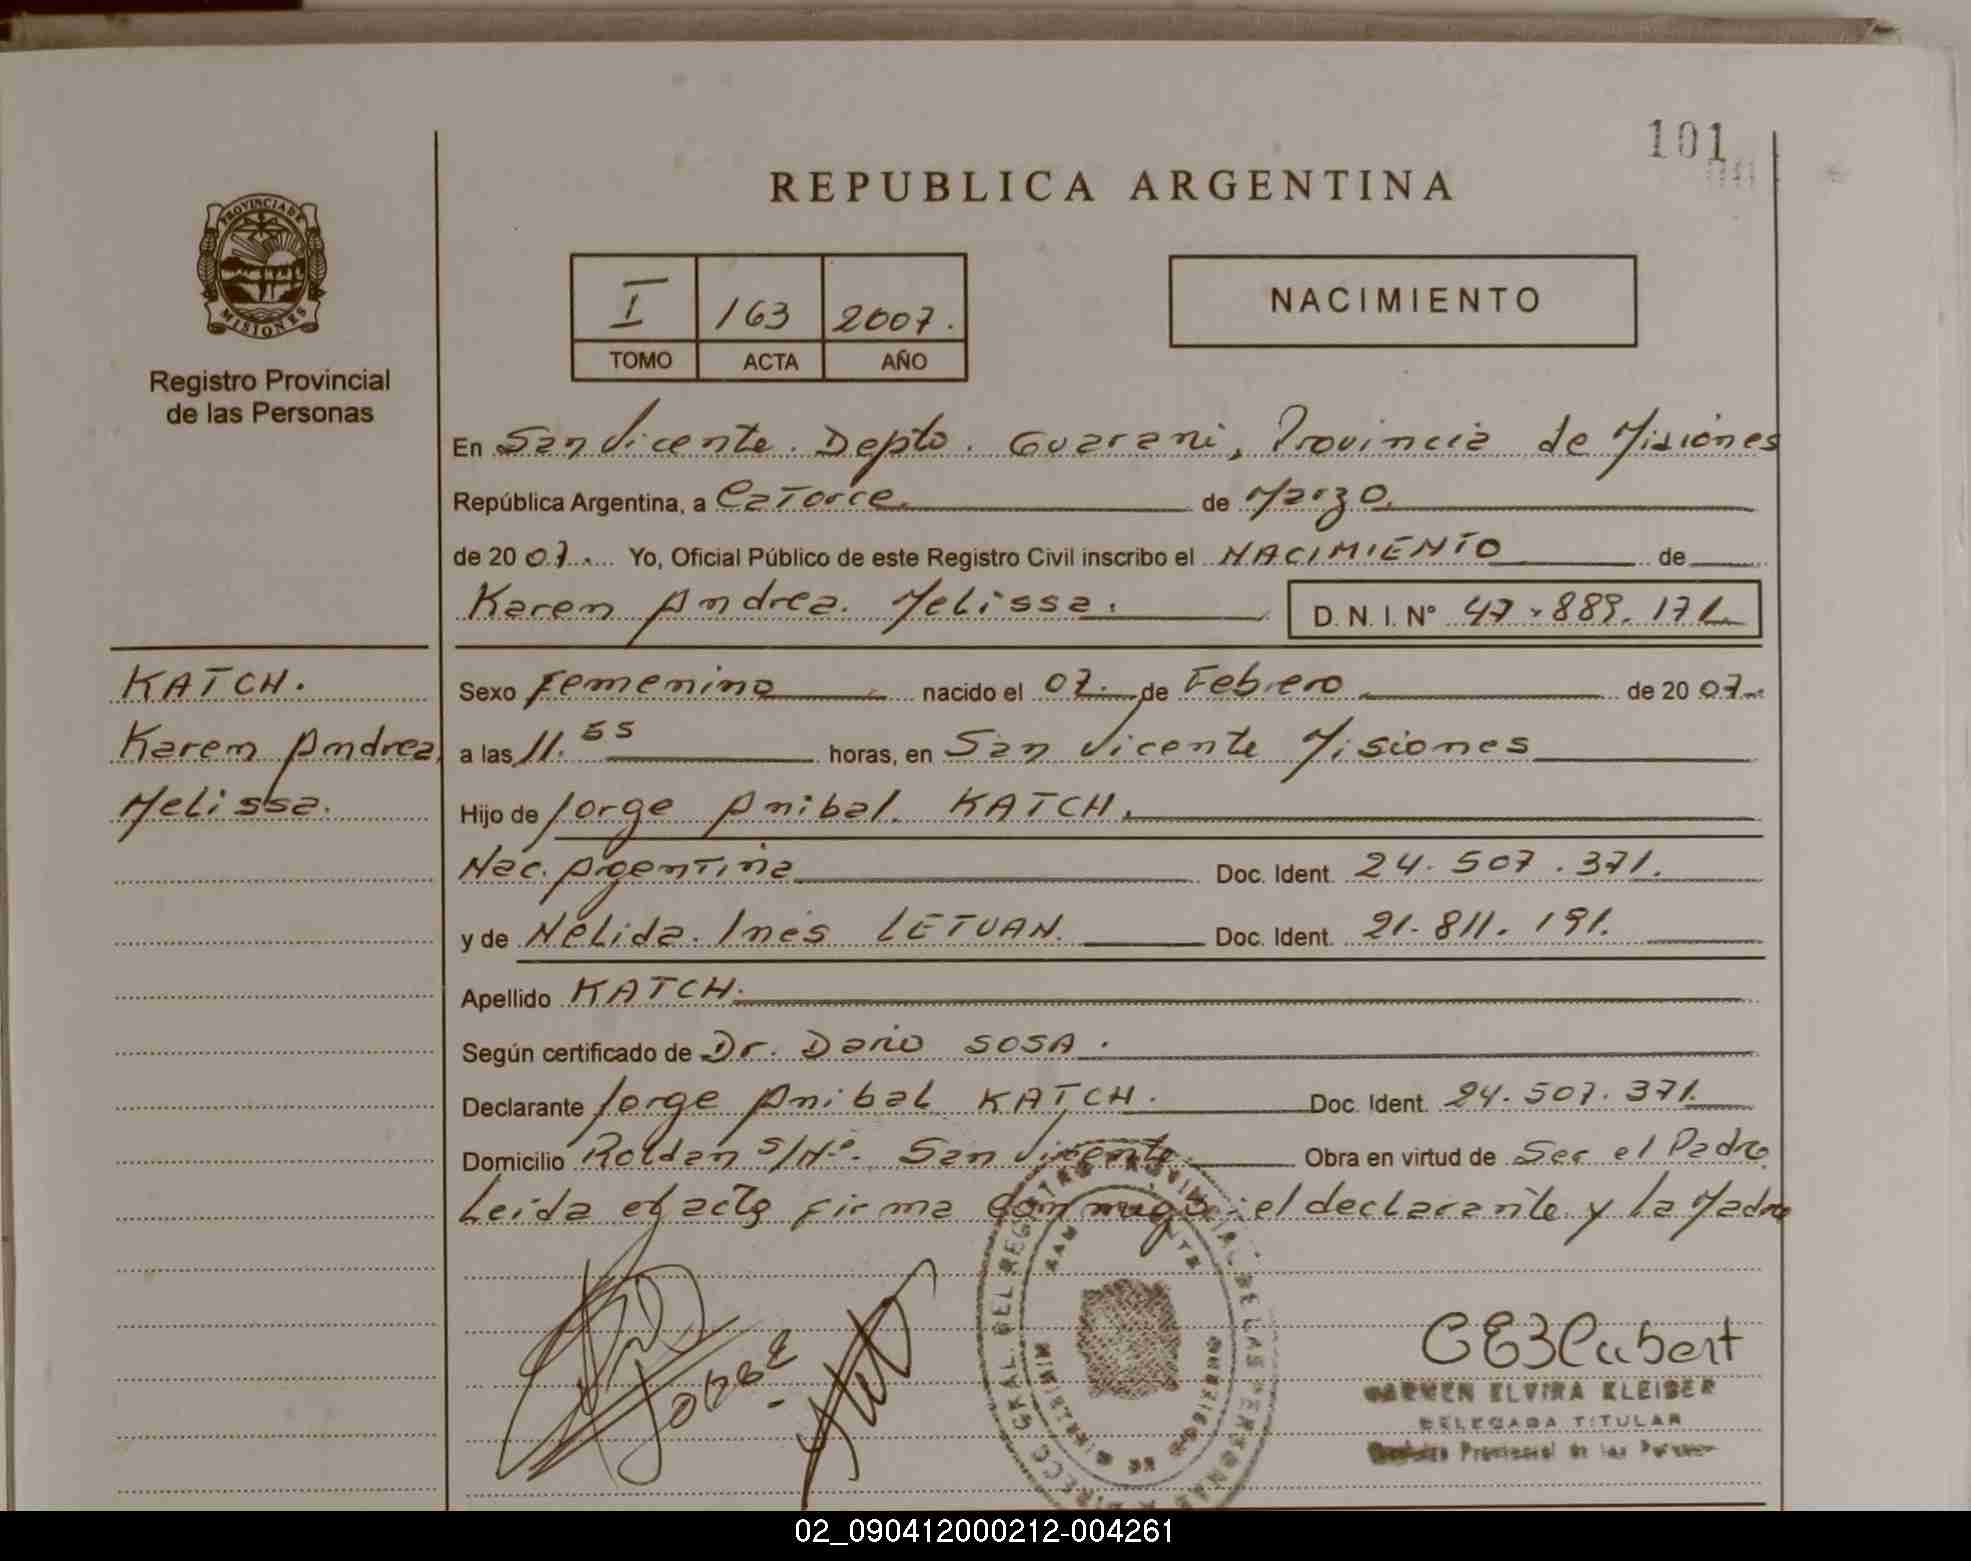 101
REPUBLICA ARGENTINA
PROVINCIA DE
MISIONES
Registro Provincial
de las Personas
I 163 2007.
TOMO ACTA AÑO
NACIMIENTO
En San Vicente. Depto. Guarani, Provincia de Misiones
República Argentina, a Catorce. de Marzo.
de 2007. Yo, Oficial Público de este Registro Civil inscribo el NACIMIENTO de
Karen Andrea. Melissa. D. N. I. N° 47.889.171
KATCH.
Karen Andrea,
Melissa.
Sexo Femenino nacido el 07. de Febrero de 2007.
a las 11.55 horas, en San Vicente Misiones
Hijo de Jorge Anibal. KATCH.
Nac. Argentina Doc. Ident. 24.507.371.
y de Nélida. Inés LETUAN. Doc. Ident. 21.811.191.
Apellido KATCH.
Según certificado de Dr. Dario SOSA.
Declarante Jorge Anibal KATCH. Doc. Ident. 24.507.371.
Domicilio Roldan S/Nº. San Vicente Obra en virtud de Ser el Padre
Leida el acta firma conmigo: el declarante y la Madre
CARMEN ELVIRA KLEIBER
DELEGADA TITULAR
Provincial de las
02_090412000212-004261